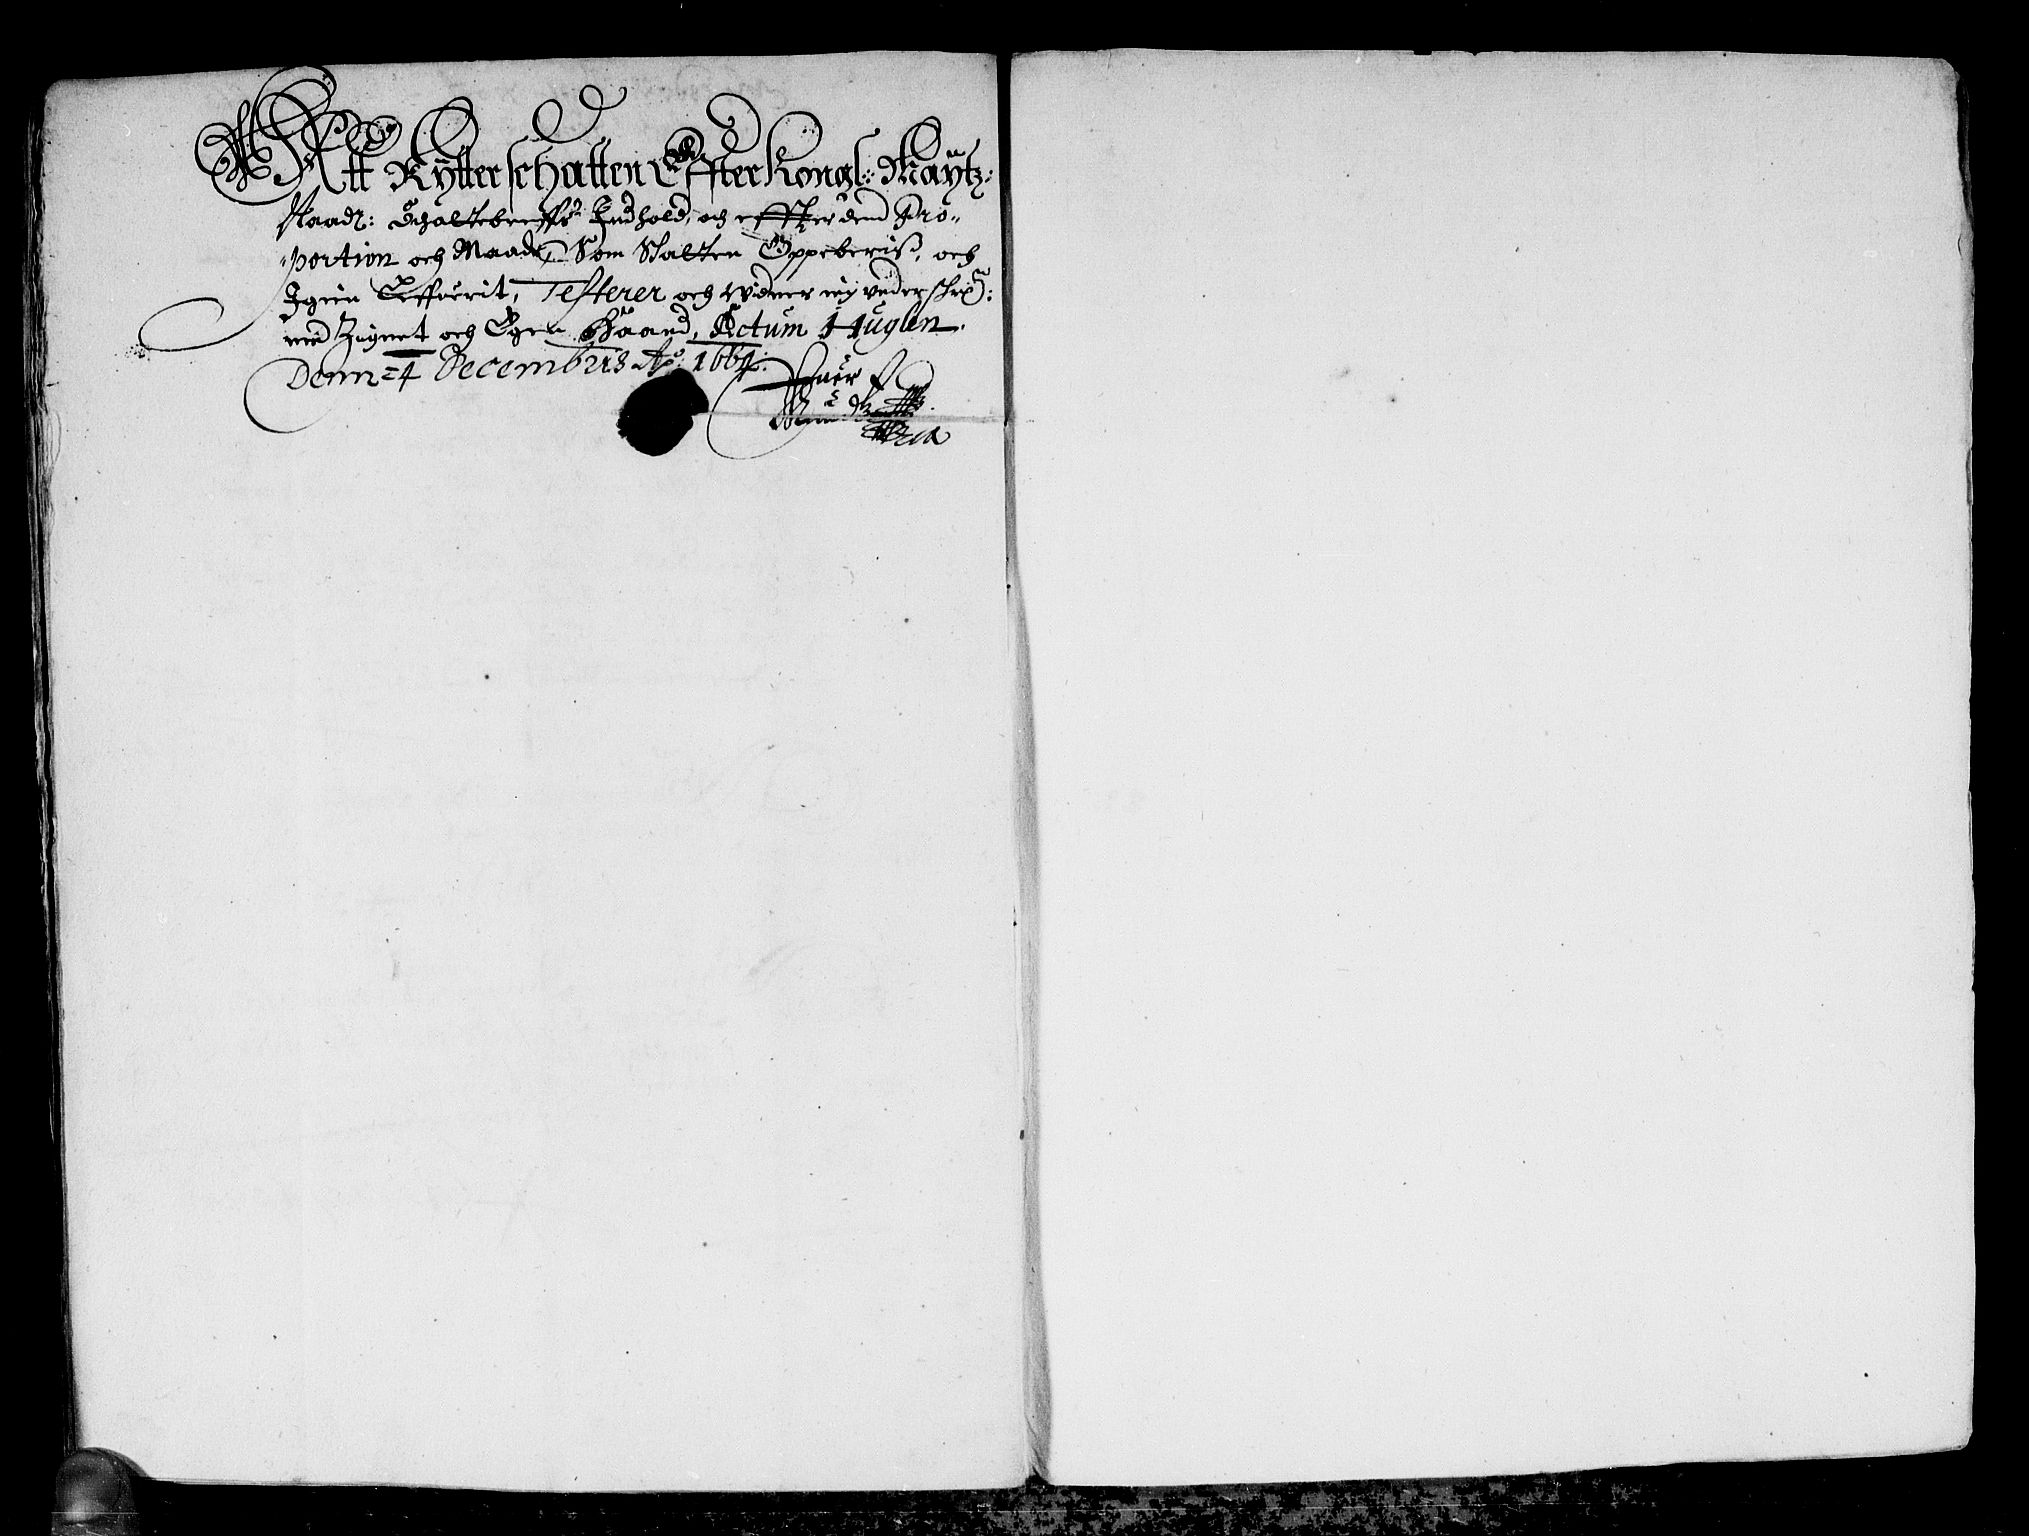 Att Rÿtterschatten Effter Kongl: Maÿtz:
Naadz: Schattebreffs Indhold, och effter dend Pro-
-portion och Maade, Som Skatten Oppeberis, och
Igien Leffuerit, Testerer och Widner ieg underschr:
med Zignet och Egen Haand, Actum Huglen.
Denn 4 Decembris Ao: 1664: